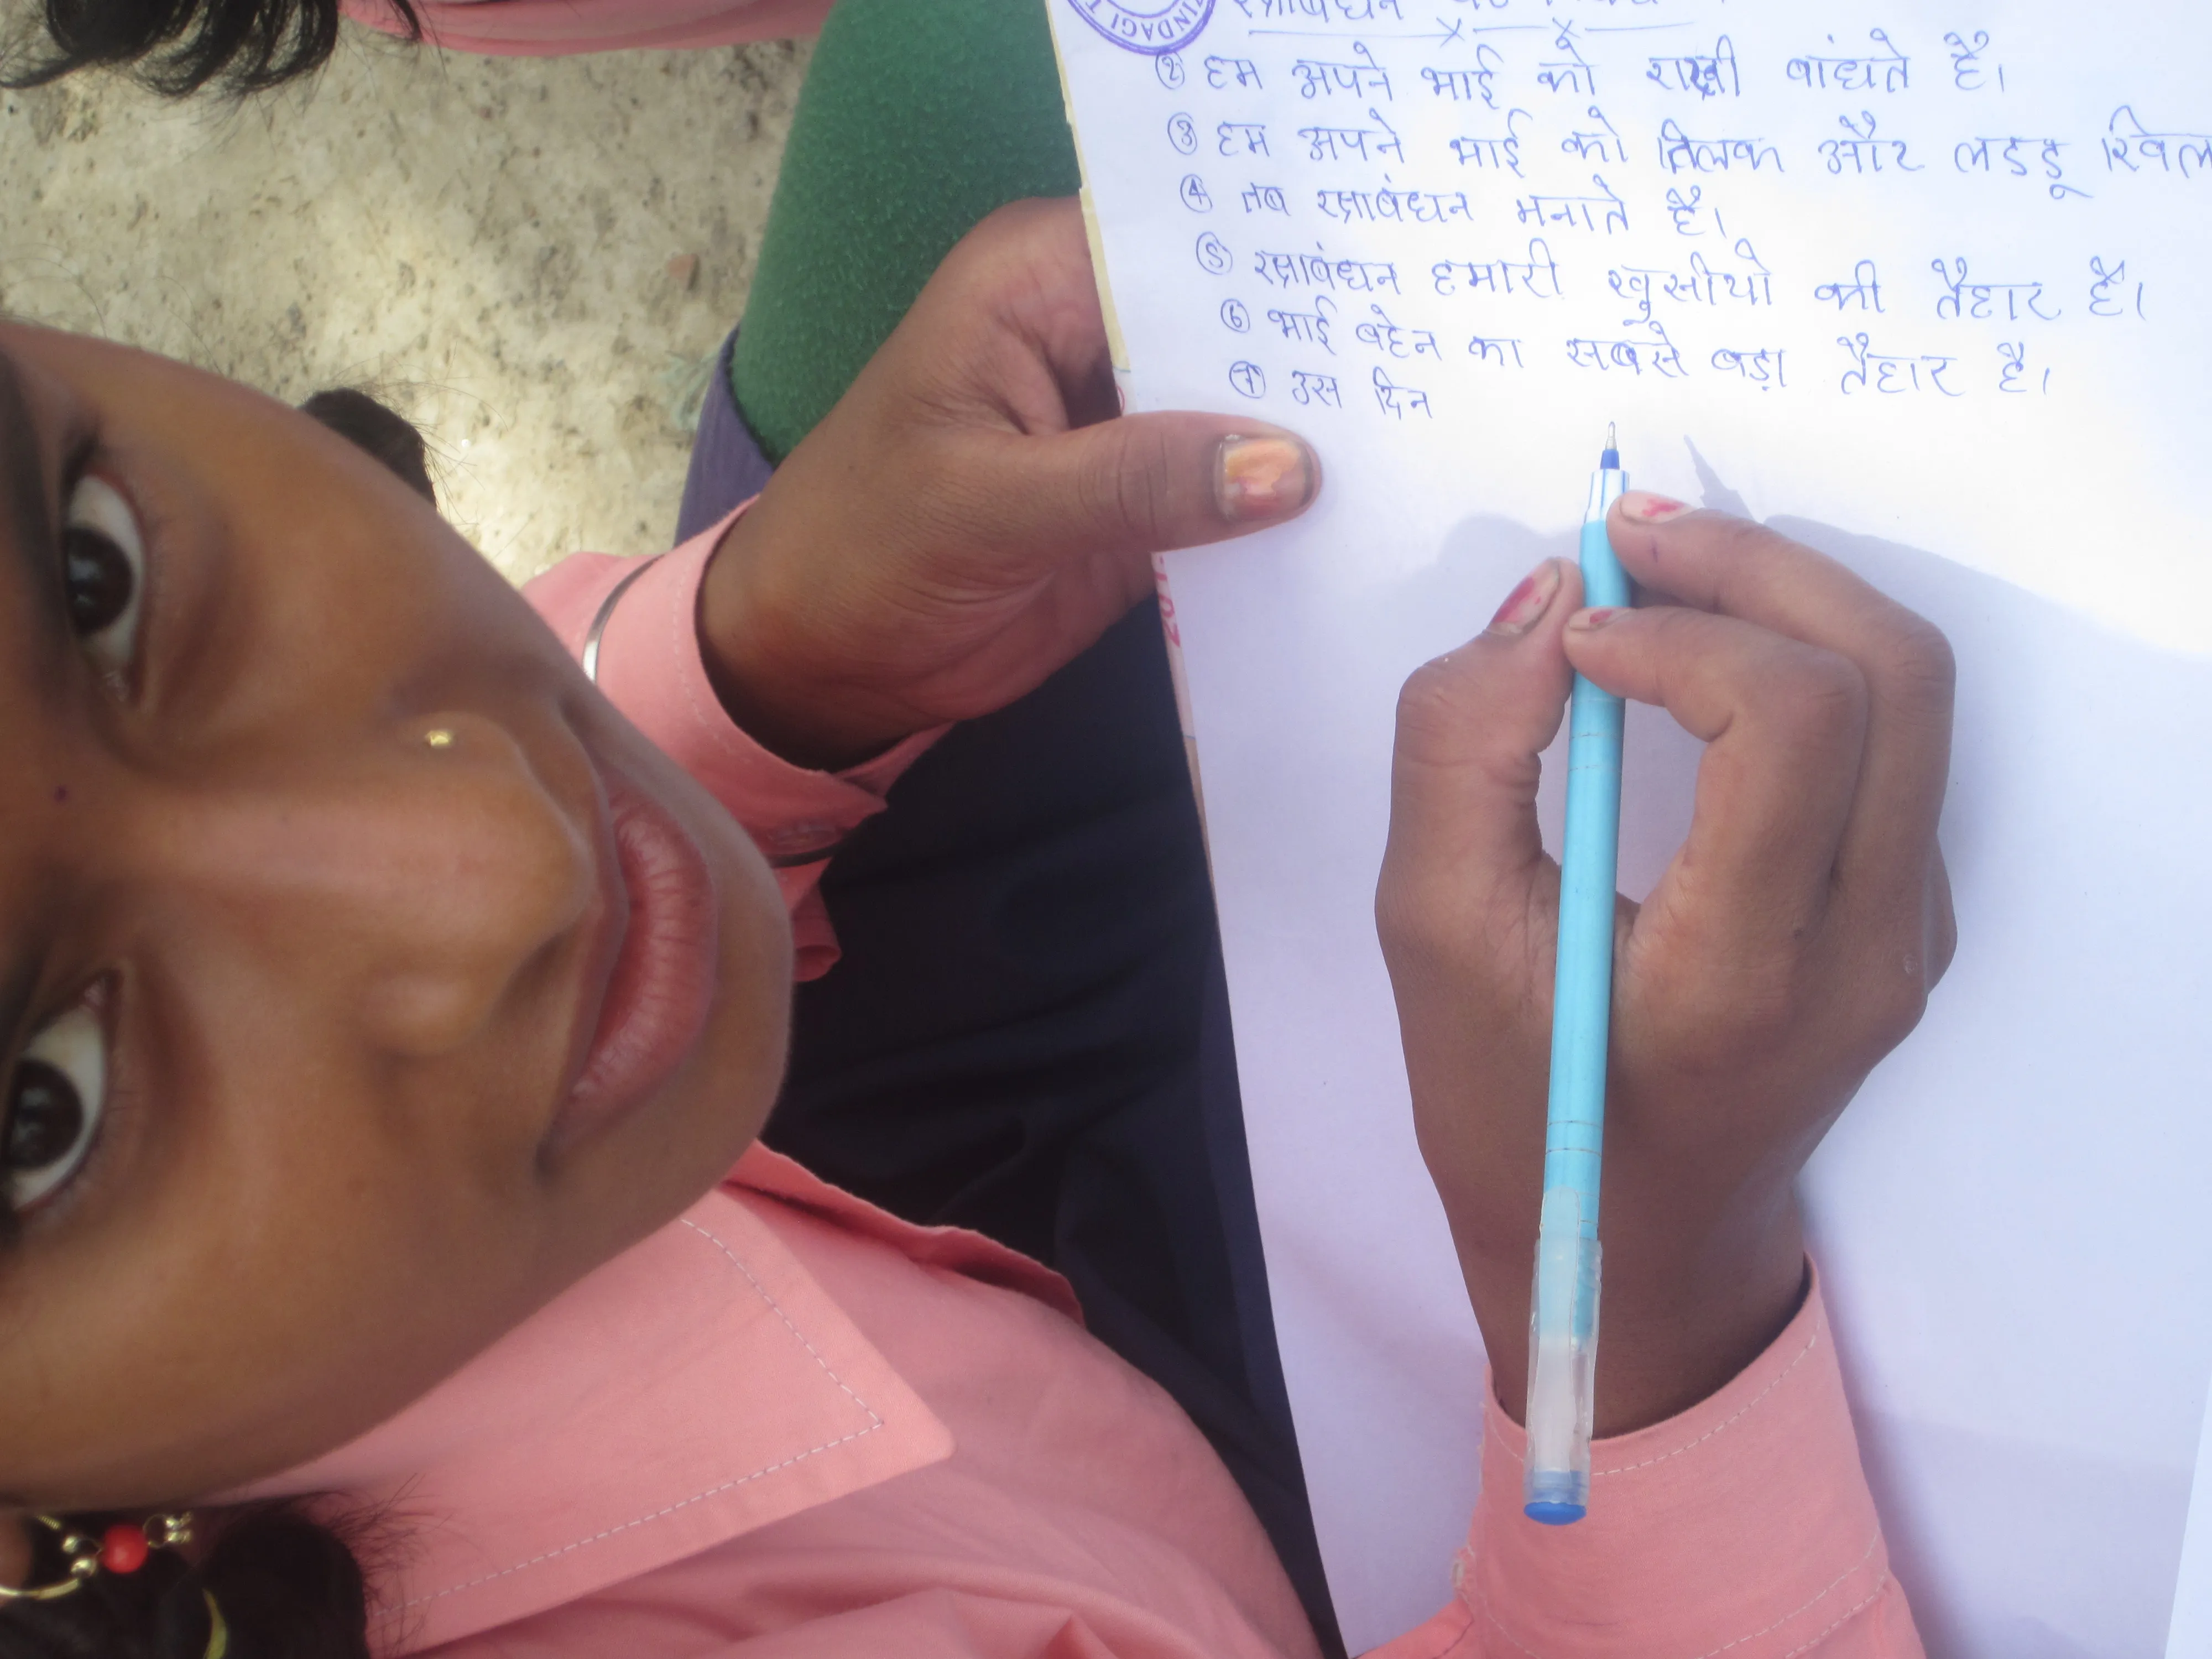 INDAGI T
रक्षाबंधन
② हम अपने भाई को राखी बांधते है।
③ हम अपने भाई को तिलक और लडडू खिल
④ तब रक्षाबंधन मनाते है।
⑤ रक्षाबंधन हमारी खुसीयो की तैहार है।
⑥ भाई बहेन का सबसे बड़ा तैहार है।
⑦ उस दिन